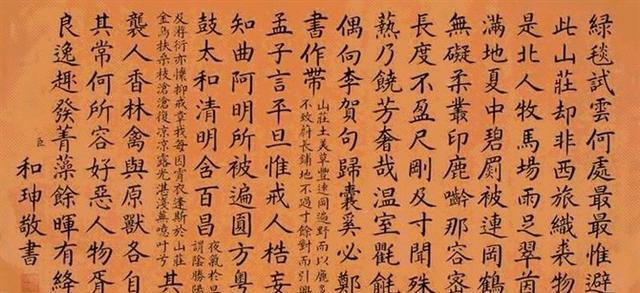 綠毯試雲何處最最惟避
此山莊却非西旅織裘物
是北人牧馬場雨足翠茵
滿地夏中碧罽被連岡鶴
無礙柔叢印鹿齡那容密
長度不盈尺剛及寸聞殊
熱乃饒芳奢哉温室氍毹
偶向李賀句歸囊奚必鄭
書作帶
山莊土美草豐遠同遍野而以鹿多
不致蔚長鋪地不過寸餘對而引興
孟子言平旦惟戒人梏妄
知曲阿明所被遍圓方粤
鼓太和清明含百昌
夜氣於旦
謂陰勝陽
其
及游衍亦懷抑戒章我每因宵衣逢斯於山莊
金烏扶桑枝滄滄復涼涼露光湛淺草噫吁兮
襲人香林禽與原獸各自
其常何所容好惡人物胥
良逸趣發菁藻餘暉有絳
臣和珅敬書